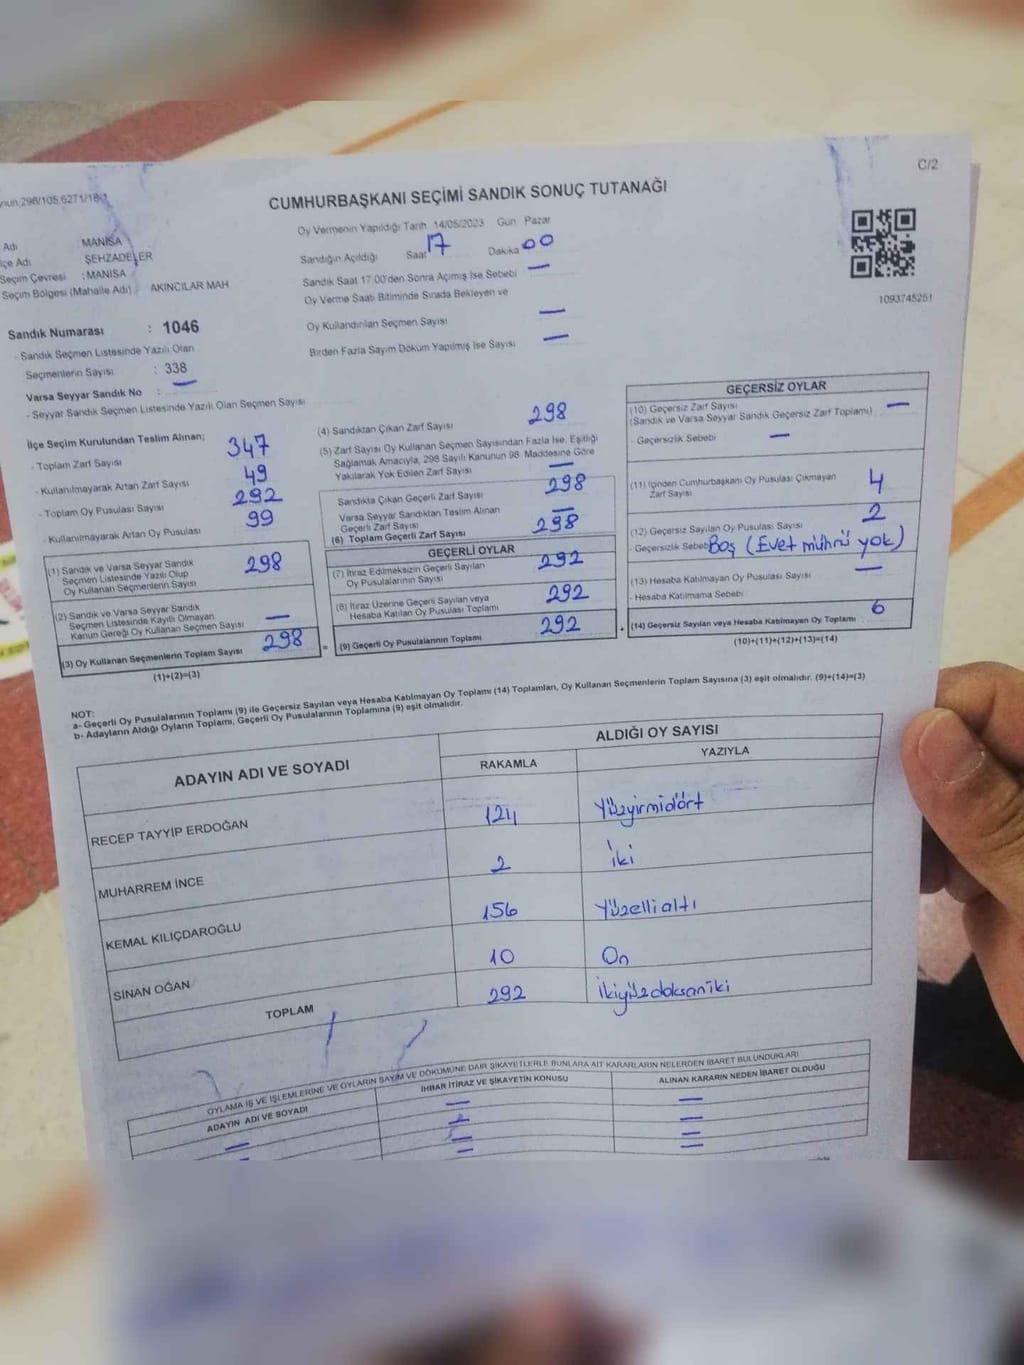 C/2
CUMHURBAŞKANI SEÇİMİ SANDIK SONUÇ TUTANAĞI
Oy Vermenin Yapıldığı Tarih 14/05/2023 Gün Pazar
Adı : MANİSA
Sandığın Açıldığı Saat 17 Dakika 00
İlçe Adı : ŞEHZADELER
Seçim Çevresi : MANİSA
Seçim Bölgesi (Mahalle Adı) : AKINCILAR MAH
Sandık Saat 17:00'den Sonra Açımış İse Sebebi —
Oy Verme Saati Bitiminde Sırada Bekleyen ve
Oy Kullandırılan Seçmen Sayısı —
Birden Fazla Sayım Döküm Yapılmış İse Sayısı —
1093745251
Sandık Numarası : 1046
- Sandık Seçmen Listesinde Yazılı Olan
Seçmenlerin Sayısı : 338
Varsa Seyyar Sandık No : —
- Seyyar Sandık Seçmen Listesinde Yazılı Olan Seçmen Sayısı
İlçe Seçim Kurulundan Teslim Alınan;
- Toplam Zarf Sayısı 347
- Kullanılmayarak Artan Zarf Sayısı 49
- Toplam Oy Pusulası Sayısı 292
- Kullanılmayarak Artan Oy Pusulası 99
(1) Sandık ve Varsa Seyyar Sandık
Seçmen Listesinde Yazılı Olup
Oy Kullanan Seçmenlerin Sayısı 298
(2) Sandık ve Varsa Seyyar Sandık
Seçmen Listesinde Kayıtlı Olmayan
Kanun Gereği Oy Kullanan Seçmen Sayısı —
(3) Oy Kullanan Seçmenlerin Toplam Sayısı 298
(1)+(2)=(3)
(4) Sandıktan Çıkan Zarf Sayısı 298
(5) Zarf Sayısı Oy Kullanan Seçmen Sayısından Fazla İse, Eşitliği
Sağlamak Amacıyla, 298 Sayılı Kanunun 98. Maddesine Göre
Yakılarak Yok Edilen Zarf Sayısı —
Sandıkta Çıkan Geçerli Zarf Sayısı 298
Varsa Seyyar Sandıktan Teslim Alınan
Geçerli Zarf Sayısı —
(6) Toplam Geçerli Zarf Sayısı 298
GEÇERLİ OYLAR
(7) İtiraz Edilmeksizin Geçerli Sayılan
Oy Pusulalarının Sayısı 292
(8) İtiraz Üzerine Geçerli Sayılan veya
Hesaba Katılan Oy Pusulası Toplamı 292
= (9) Geçerli Oy Pusulalarının Toplamı 292 +
GEÇERSİZ OYLAR
(10) Geçersiz Zarf Sayısı —
(Sandık ve Varsa Seyyar Sandık Geçersiz Zarf Toplamı)
- Geçersizlik Sebebi —
(11) İçinden Cumhurbaşkanı Oy Pusulası Çıkmayan
Zarf Sayısı 4
(12) Geçersiz Sayılan Oy Pusulası Sayısı 2
- Geçersizlik Sebebi Boş (Evet mührü yok)
(13) Hesaba Katılmayan Oy Pusulası Sayısı —
- Hesaba Katılmama Sebebi
(14) Geçersiz Sayılan veya Hesaba Katılmayan Oy Toplamı 6
(10)+(11)+(12)+(13)=(14)
NOT:
a- Geçerli Oy Pusulalarının Toplamı (9) ile Geçersiz Sayılan veya Hesaba Katılmayan Oy Toplamı (14) Toplamları, Oy Kullanan Seçmenlerin Toplam Sayısına (3) eşit olmalıdır. (9)+(14)=(3)
b- Adayların Aldığı Oyların Toplamı, Geçerli Oy Pusulalarının Toplamına (9) eşit olmalıdır.
ADAYIN ADI VE SOYADI
ALDIĞI OY SAYISI
RAKAMLA YAZIYLA
RECEP TAYYİP ERDOĞAN 124 Yüzyirmidört
MUHARREM İNCE 2 İki
KEMAL KILIÇDAROĞLU 156 Yüzellialtı
SİNAN OĞAN 10 On
TOPLAM 292 İkiyüzdoksaniki
OYLAMA İŞ VE İŞLEMLERİNE VE OYLARIN SAYIM VE DÖKÜMÜNE DAİR ŞİKAYETLERLE BUNLARA AİT KARARLARIN NELERDEN İBARET BULUNDUKLARI
ADAYIN ADI VE SOYADI İHBAR İTİRAZ VE ŞİKAYETİN KONUSU ALINAN KARARIN NEDEN İBARET OLDUĞU